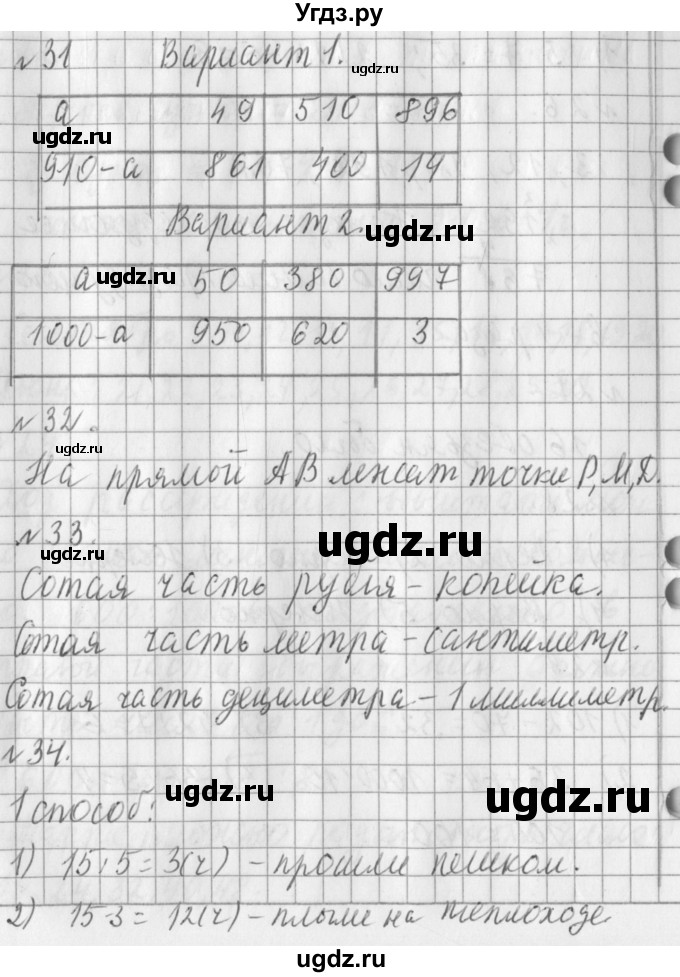 Угдз.ру
№31 Вариант 1.
ugdz.ru
а 49 510 896
ugdz.ru
910-а 861 400 14
Вариант 2. ugdz.ru
а ugdz.ru 50 380 997
1000-а 950 620 3
№32.
ugdz.ru
На прямой АВ лежат точки Р, М, D.
№33. ugdz.ru
ugdz.ru
Сотая часть рубля - копейка.
Сотая часть метра - сантиметр.
Сотая часть дециметра - 1 миллиметр.
№34.
ugdz.ru ugdz.ru
1 способ:
1) 15:5=3(ч) - прошли пешком.
2) 15-3=12(ч) - плыли на теплоходе
ugdz.ru